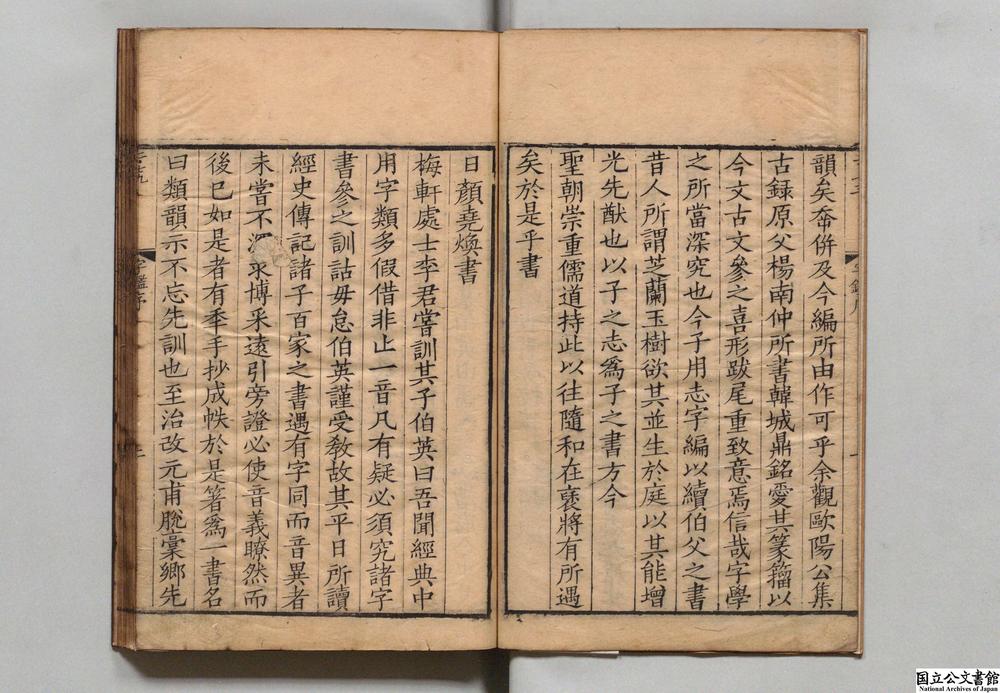 韻矣奮併及今編所由作可乎余觀歐陽公集
古録原父楊南仲所書韓城鼎銘愛其篆籀以
今文古文參之喜形跋尾重致意焉信哉字學
之所當深究也今子用志字編以續伯父之書
昔人所謂芝蘭玉樹欲其並生於庭以其能增
光先猷也以子之志爲子之書方今
聖朝崇重儒道持此以往隨和在褎將有所遇
矣於是乎書
日顏堯煥書
梅軒處士李君嘗訓其子伯英曰吾聞經典中
用字類多假借非止一音凡有疑必須究諸字
書參之訓詁毋怠伯英謹受敎故其平日所讀
經史傳記諸子百家之書遇有字同而音異者
未嘗不深求博采遠引旁證必使音義瞭然而
後已如是者有秊手抄成帙於是著爲一書名
曰類韻示不忘先訓也至治改元甫脫稾鄉先
字鑑序
国立公文書館
National Archives of Japan